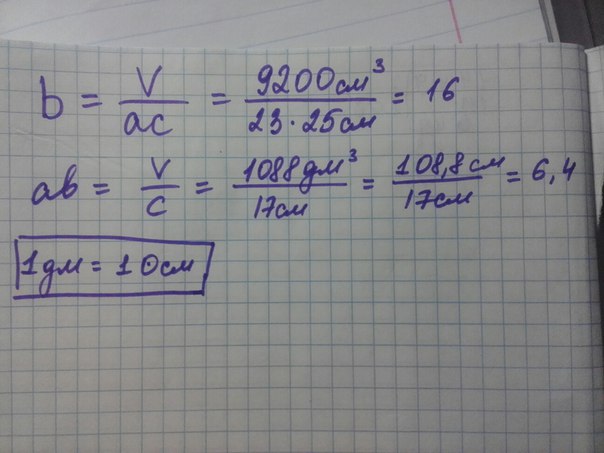 b = V/ac = 9200см³/23·25см = 16
ab = V/c = 1088дм³/17см = 108,8см/17см = 6,4
1дм = 10см